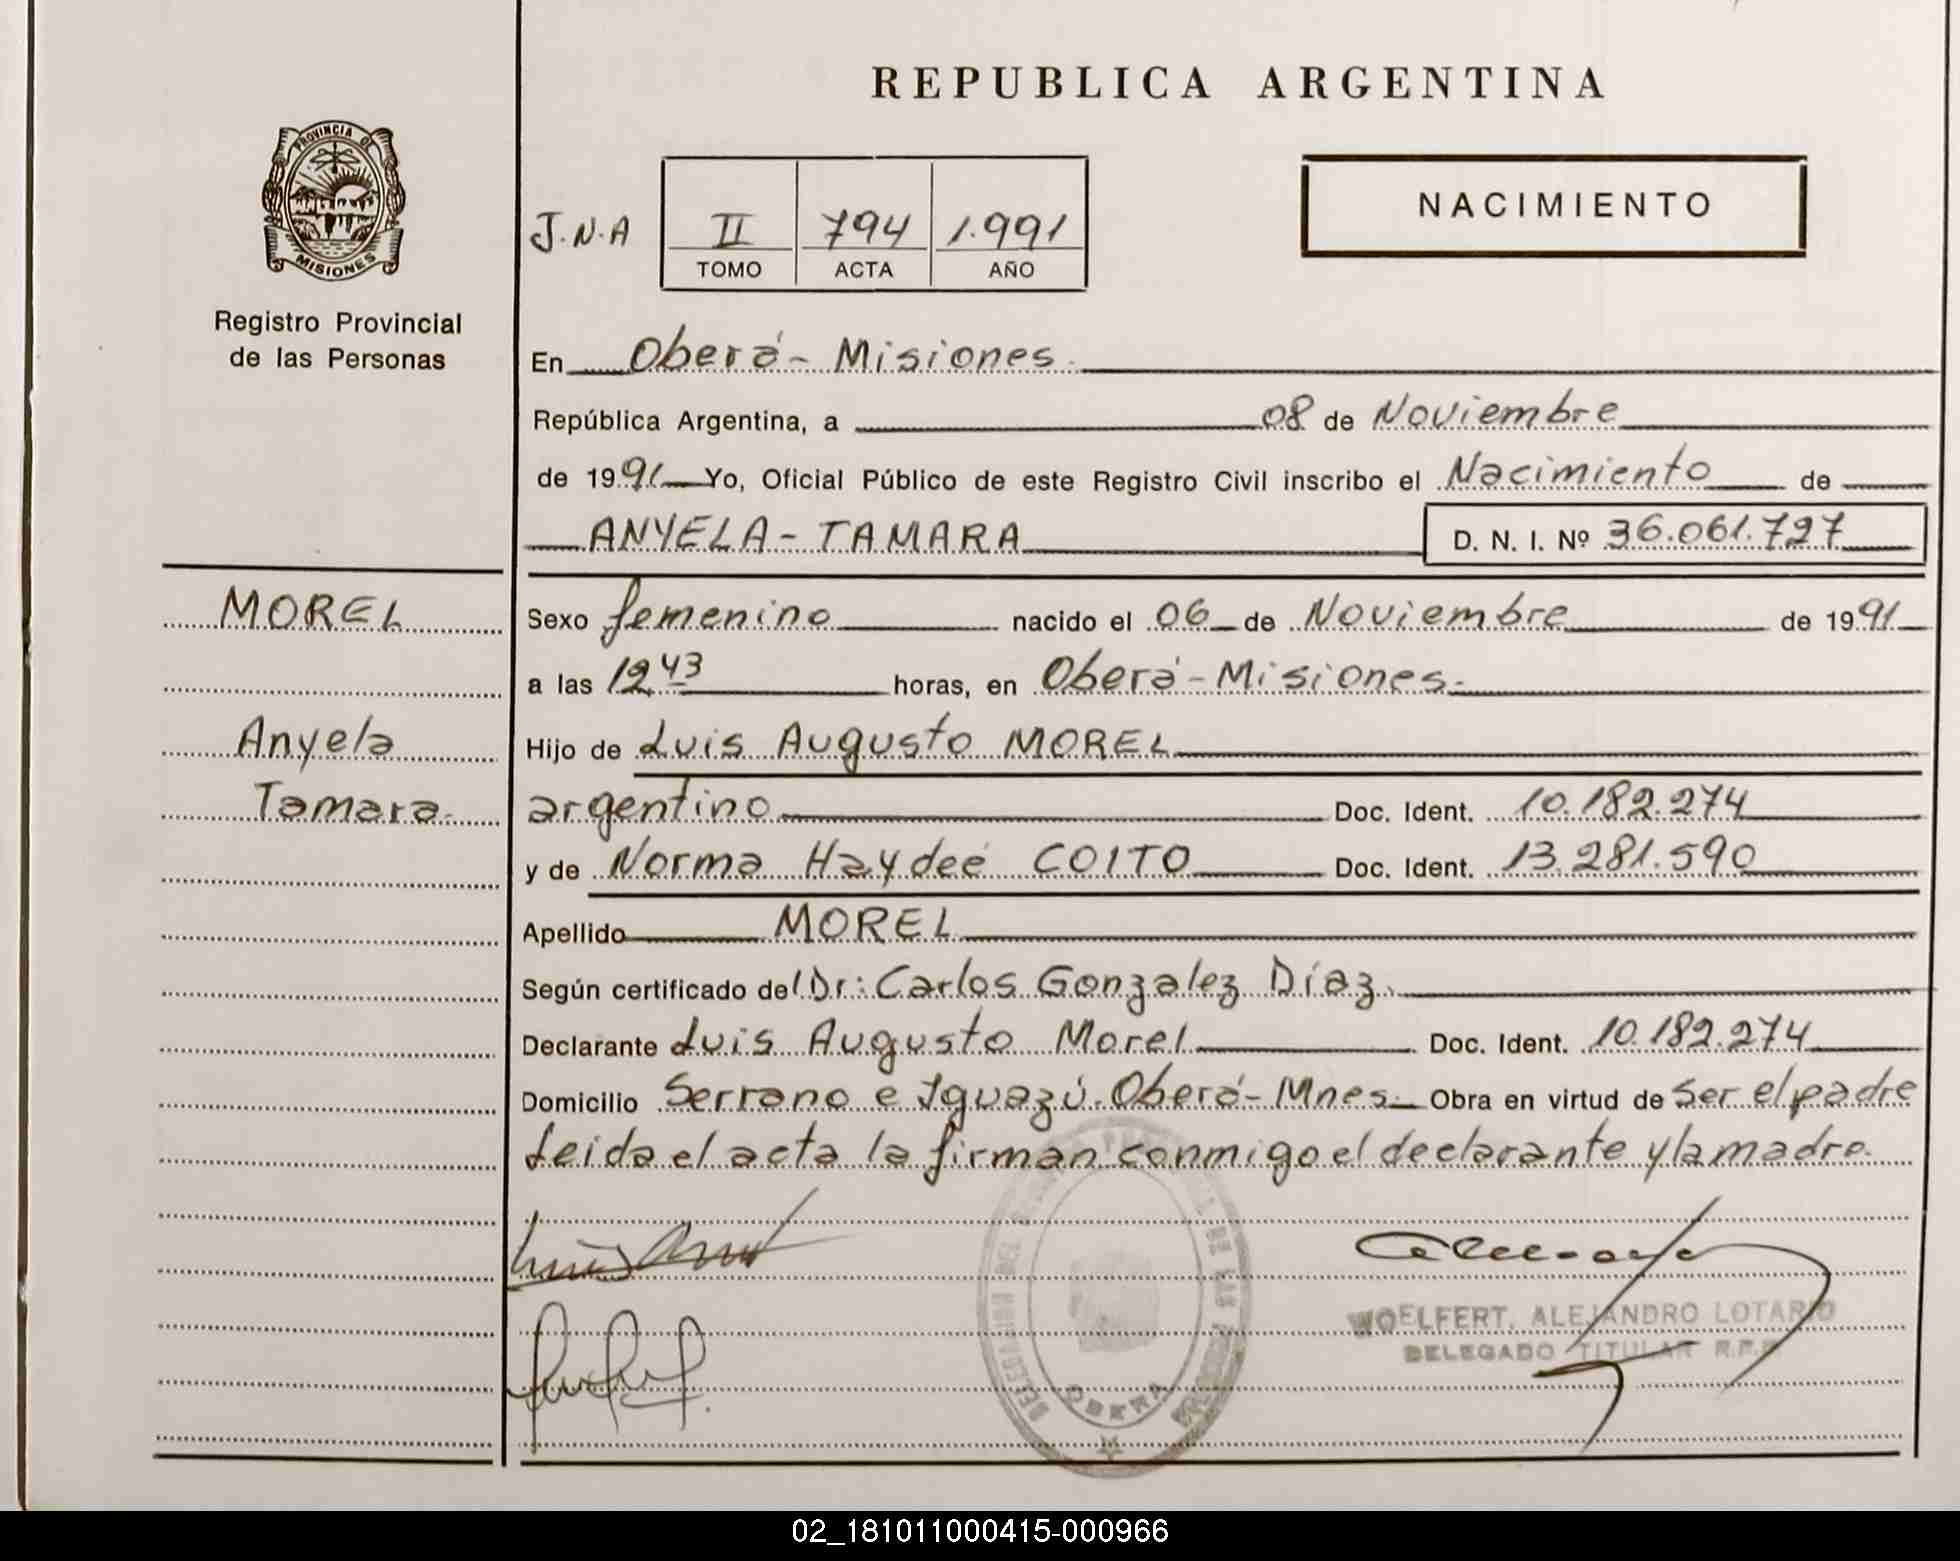 REPUBLICA ARGENTINA
PROVINCIA DE
MISIONES
Registro Provincial
de las Personas
J.N.A
II 794 1.991
TOMO ACTA AÑO
NACIMIENTO
En Oberá - Misiones.
República Argentina, a 08 de Noviembre
de 1991 Yo, Oficial Público de este Registro Civil inscribo el Nacimiento de
ANYELA - TAMARA D. N. I. Nº 36.061.727
MOREL
Anyela
Tamara.
Sexo femenino nacido el 06 de Noviembre de 1991
a las 12 43 horas, en Oberá - Misiones.
Hijo de Luis Augusto MOREL
argentino Doc. Ident. 10.182.274
y de Norma Haydeé COITO Doc. Ident. 13.281.590
Apellido MOREL
Según certificado del Dr: Carlos Gonzalez Díaz.
Declarante Luis Augusto Morel Doc. Ident. 10.182.274
Domicilio Serrano e Iguazú. Oberá - Mnes. Obra en virtud de ser el padre
Leida el acta la firman conmigo el declarante y la madre.
WOELFERT, ALEJANDRO LOTARIO
DELEGADO TITULAR R.P.P.
OBERA
02_181011000415-000966